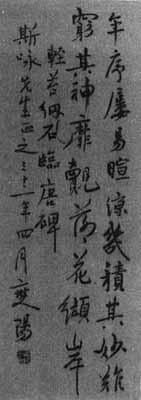 年序屢易暄涼幾積其妙難
窮其神靡覿荷花繽岸
輕苔 石臨唐碑
斯詠先生正之三十一年四月 陽